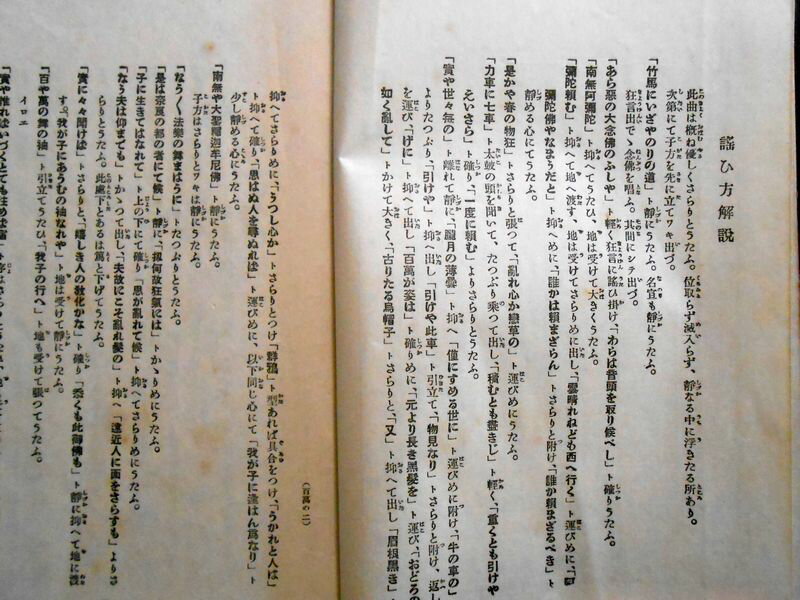 謠ひ方解説
此曲は概ね優しくさらりとうたふ。位取らず滅入らず、靜なる中に浮きたる所あり。
次第にて子方を先に立てワキ出づ。
「竹馬にいざやのりの道」ト靜にうたふ。名宣も靜にうたふ。
狂言出でゝ念佛を唱ふ。其間にシテ出づ。
「あら惡の大念佛のふしや」ト輕く狂言に謠ひ掛け、「わらは音頭を取り候べし」ト確りうたふ。
「南無阿彌陀」トうたひ、地は受けて大きくうたふ。
「彌陀頼む」ト抑へて地へ渡す、地は受けてさらりめに出し、「雲晴れねども西へ行く」ト運びめに、「阿
彌陀佛やなまうだと」ト抑へめに、「誰かは頼まざらん」トさらりと附け、「誰か頼まざるべき」ト
靜める心にてうたふ。
「是かや春の物狂」トさらりと張つて、「亂れ心か戀草の」ト運びめにうたふ。
「力車に七車」ト太鼓の頭を聞いて、たつぷり乘つて出し、「積むとも盡きじ」ト輕く、「重くとも引けや
えいさら」ト確り、「一度に頼む」よりさらりとうたふ。
「實や世々毎の」ト離れて靜に、「朧月の薄曇」ト抑へ、「僅にすめる世に」ト運びめに附け、「牛の車の」
よりたつぷり、「引けや」ト抑へ出し、「引けや此車」ト引立て、「物見なり」トさらりと附け、返し
を運び、「げに」ト抑へて出し、「百萬が姿は」ト確りめに、「元より長き黑髮を」ト運び、「おどろの
如く亂して」トかけて大きく、「古りたる烏帽子」トさらりと、「又」ト抑へて出し、「眉根黑き」ト
抑へてさらりめに、「うつし心か」トさらりとつけ、「群鴉」ト型あれば具合をつけ、「うかれと人は」
ト抑へて確り、「思はぬ人を尋ぬれば」ト運びめに、以下同じ心にて、「我が子に逢はん爲なり」ト
少し靜める心にうたふ。
「南無や大聖釋迦牟尼佛」ト靜にうたふ。
子方はさらりとワキは靜にうたふ。
「なう〳〵法樂の舞まはうに」トたつぷりとうたふ。
「是は奈良の都の者にて候」ト靜に、「扨何故狂氣には」トかゝりめにうたふ。
「子に生きてはなれて」ト上の下にて確り、「思が亂れて候」ト抑へてさらりめにうたふ。
「なう夫は仰までも」トかゝつて出し、「夫故にこそ亂れ髮の」ト抑へ、「遠近人に面をさらすも」よりさ
らりとうたふ。此處下とあるは篤と下げてうたふ。
「實に々々聞けば」トさらりと、「嬉しき人の敎化かな」ト確り、「悉くも此御佛も」ト靜に抑へて地に渡
す。「我が子にあうむの袖なれや」ト地は受けて靜にうたふ。
「百や萬の舞の袖」ト引立てうたひ、「我子の行へ」ト地も受けて張つてうたふ。
イロエ
(百萬の二)